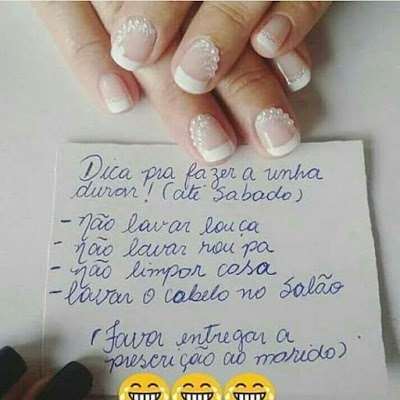 Dica pra fazer a unha
durar! (até Sabado)
- não lavar louça
- não lavar roupa
- não limpar casa
- lavar o cabelo no Salão
(Favor entregar a
prescrição ao marido)